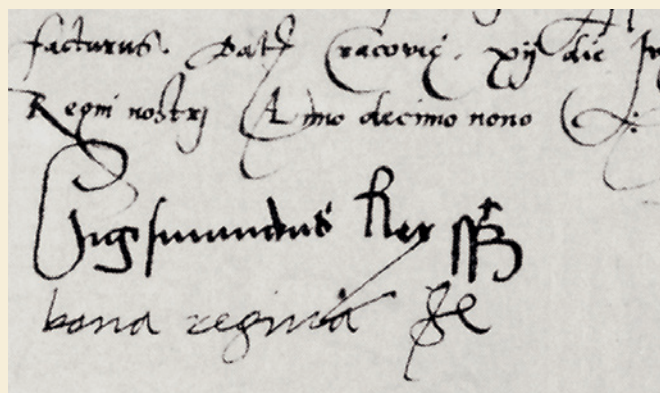 facturus. Dat Cracovię. xij die
Regni nostri Anno decimo nono
Sigismundus Rex ssB
bona regina